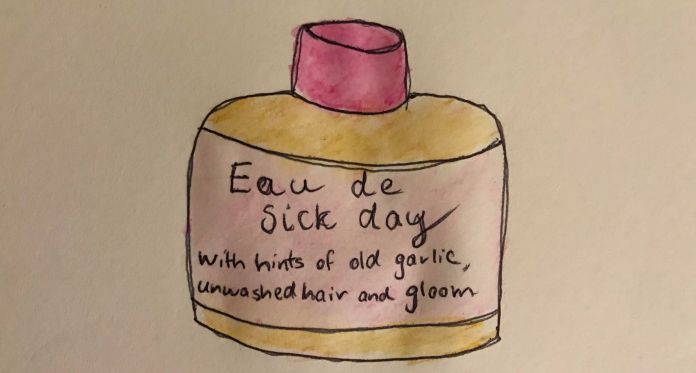 Eau de
sick day
with hints of old garlic,
unwashed hair and gloom